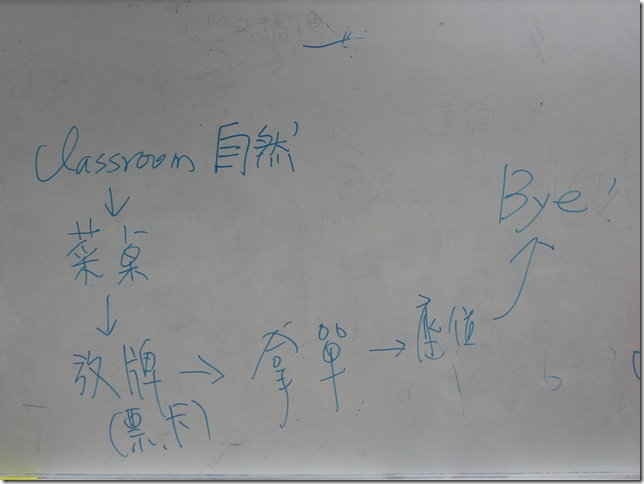 Classroom 自然
↓
菜桌
↓
放牌 → 拿單 → 座位 ↗ Bye!
(票卡)